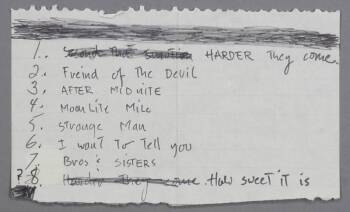 1. Second That Emotion HARDER They come.
2. Freind of The Devil
3. AFTER MIDNITE
4. MoonLite Mile
5. Strange Man
6. I want To Tell you
7. Bros & SISTERS
? 8. Harder They come How sweet it is